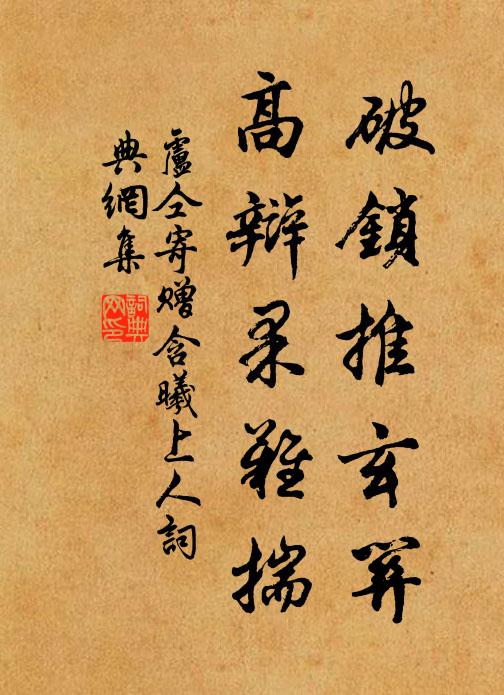 破鎖推玄關
高辯果難揣
盧仝寄贈含曦上人詞
典網集
詞典網印